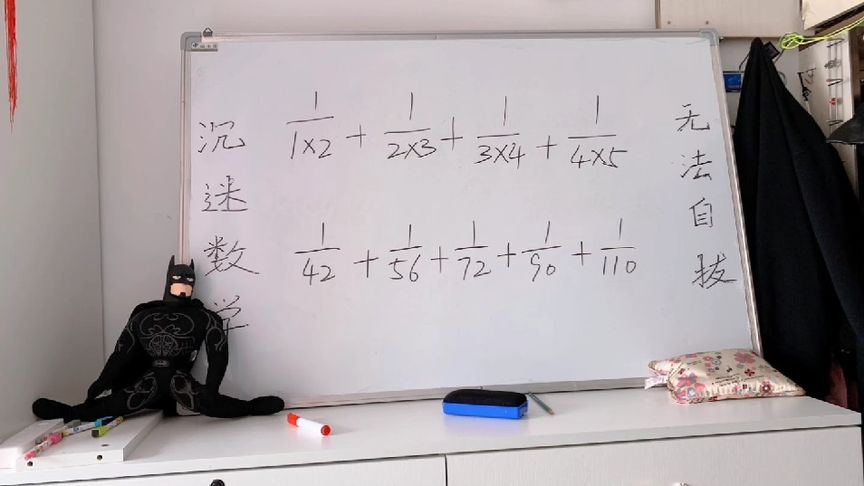 沉迷数学
1/1×2 + 1/2×3 + 1/3×4 + 1/4×5
1/42 + 1/56 + 1/72 + 1/90 + 1/110
无法自拔